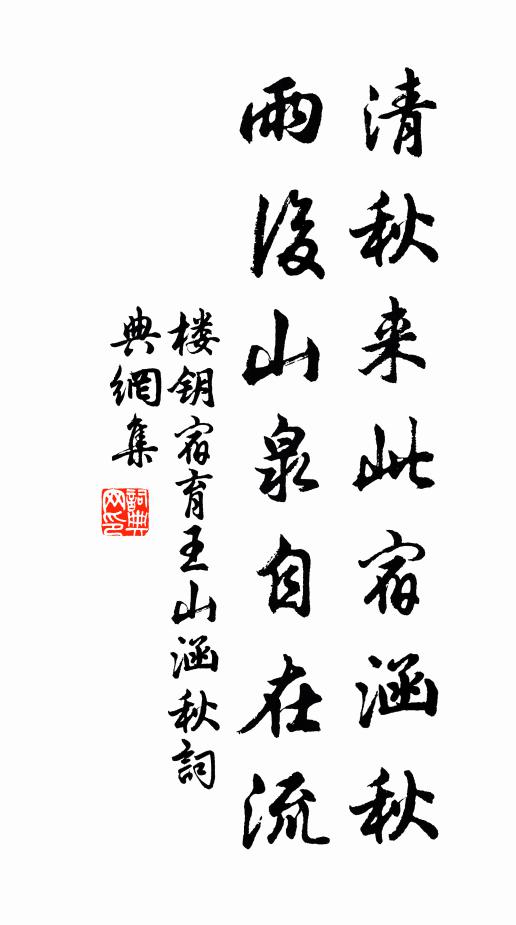 清秋来此宿涵秋
雨後山泉自在流
楼钥宿育王山涵秋詞
典網集
詞典
网印